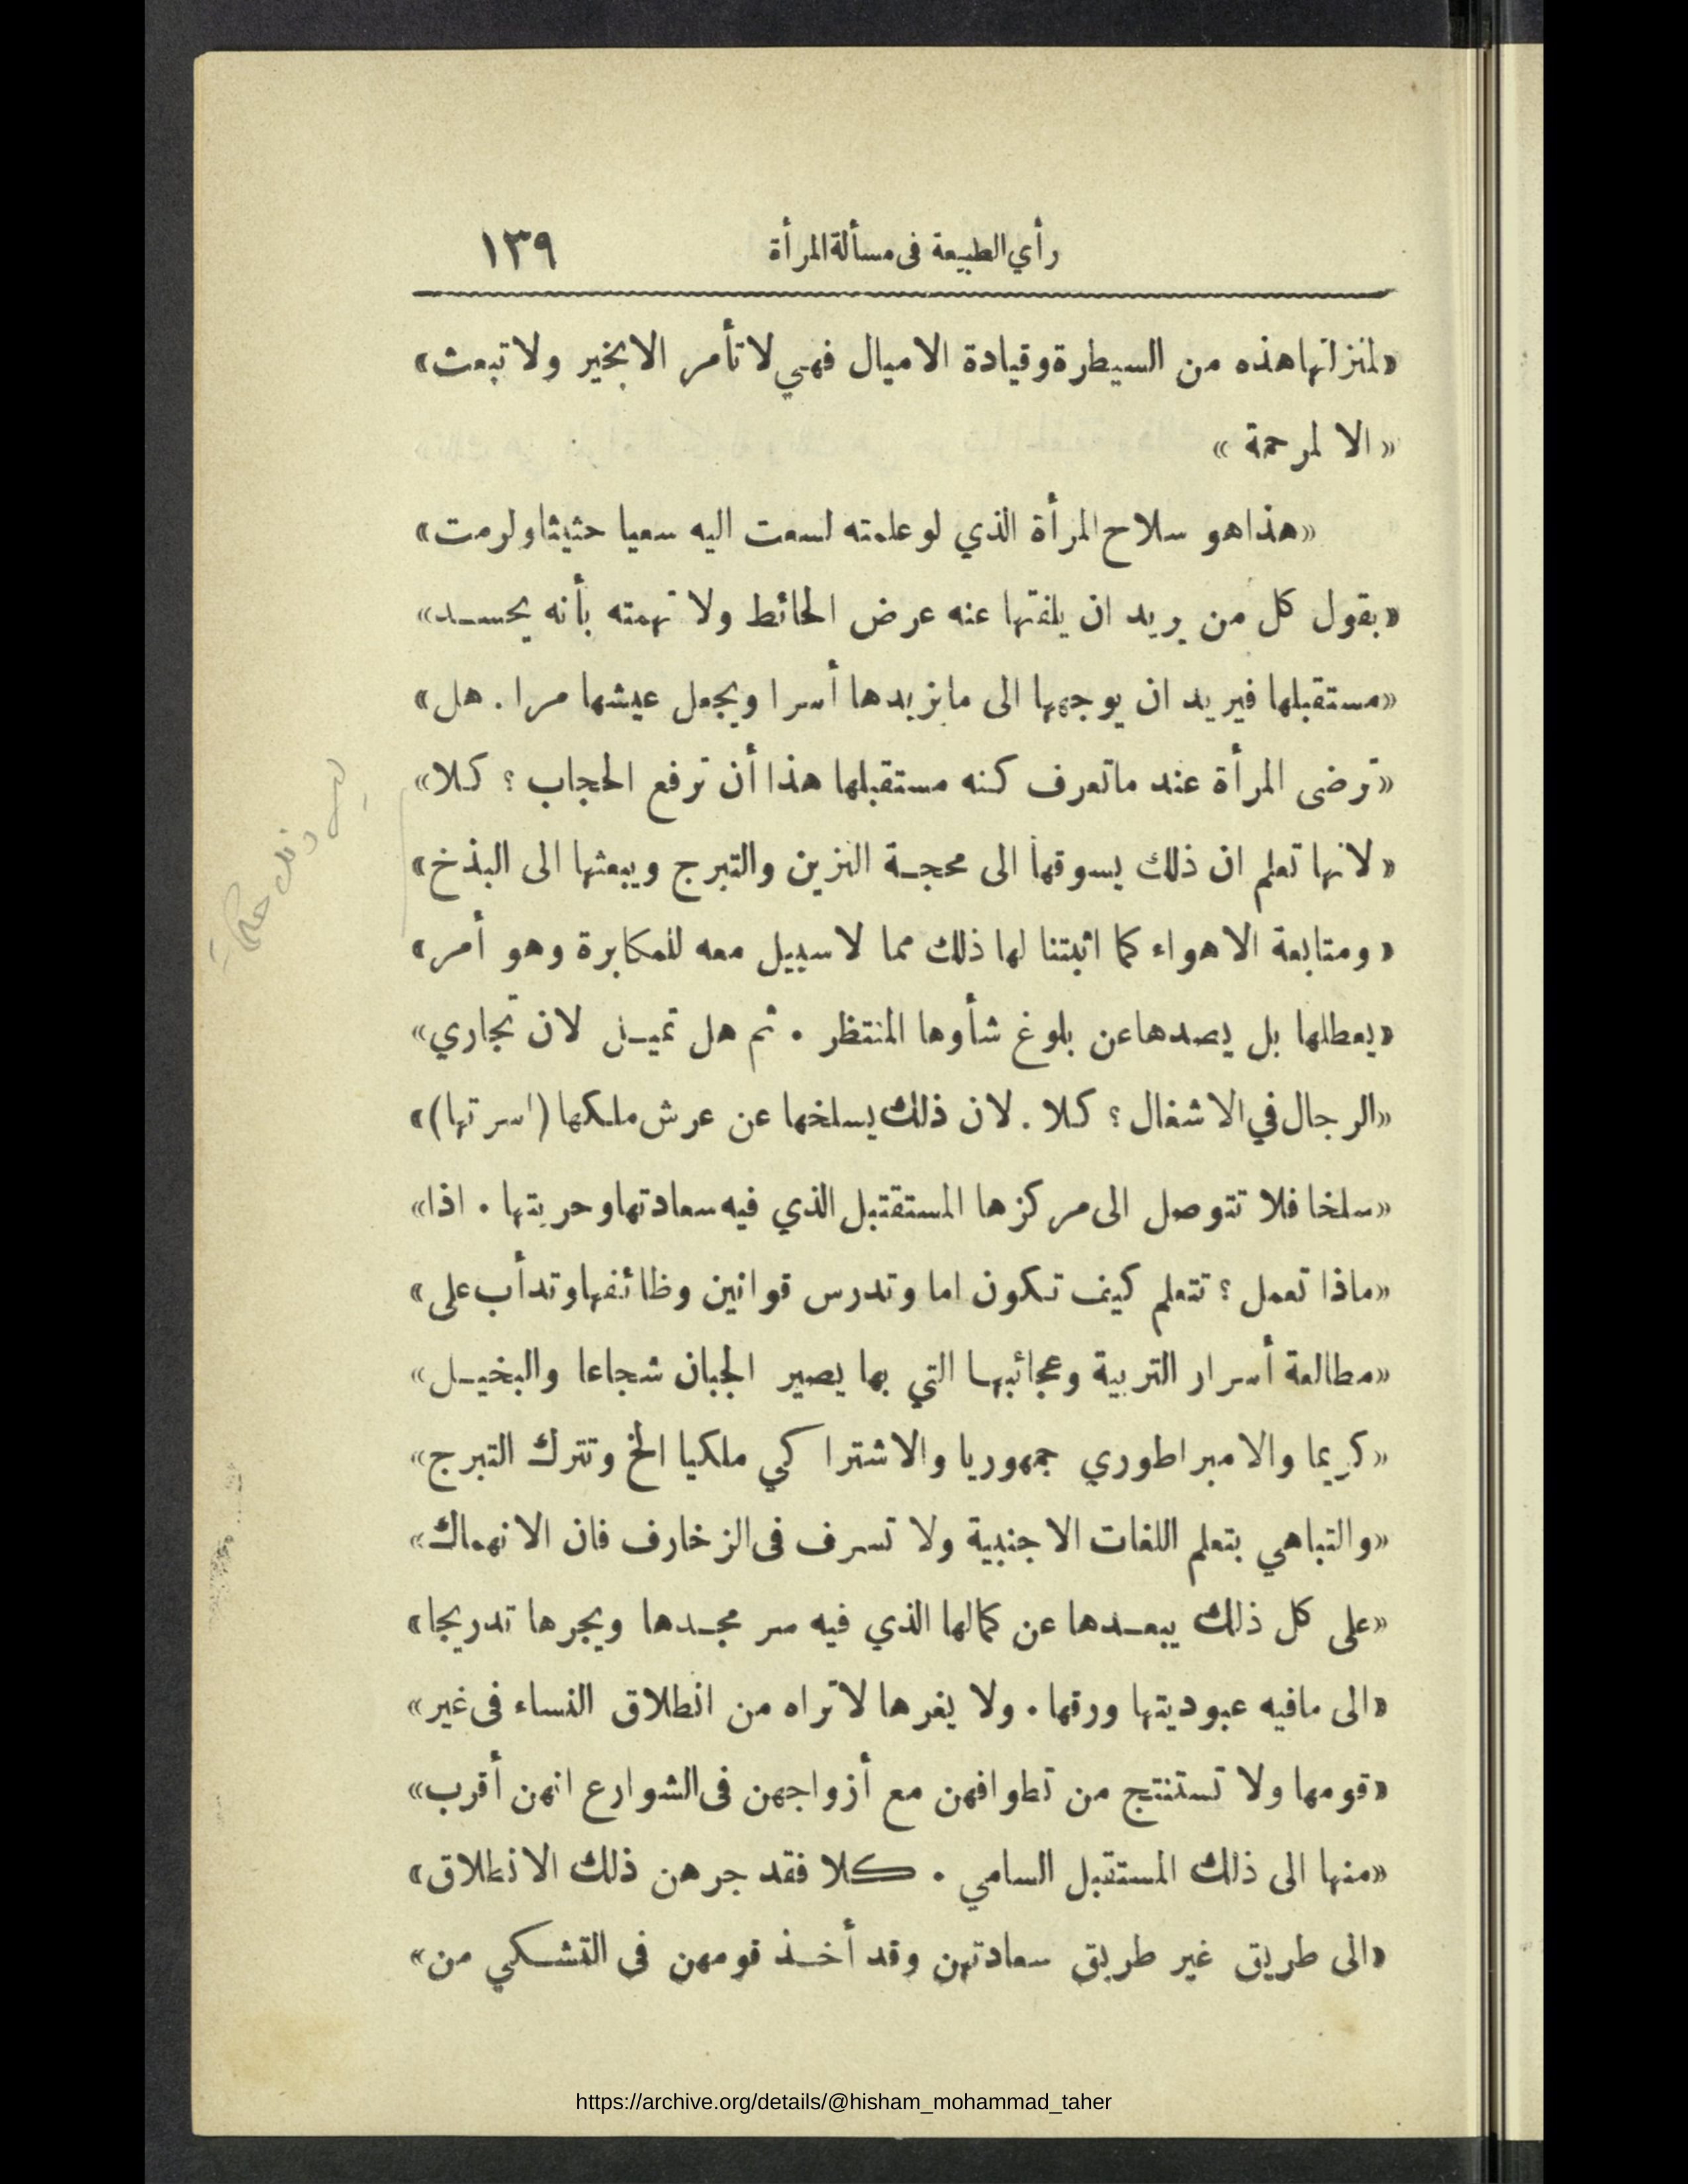 رأي الطبيعة فى مسألة المرأة ١٣٩
«لمنزلتها هذه من السيطرة وقيادة الاميال فهي لا تأمر الا بخير ولا تبعث»
«الا لمرحمة»
«هذا هو سلاح المرأة الذي لو علمته لسعت اليه سعيا حثيثا ولرمت»
«بقول كل من يريد ان يلفتها عنه عرض الحائط ولا تهمته بأنه يحسد»
«مستقبلها فيريد ان يوجهها الى ما يزيدها أسرا ويجعل عيشها مرا . هل»
«ترضى المرأة عند ما تعرف كنه مستقبلها هذا أن ترفع الحجاب ؟ كلا»
«لانها تعلم ان ذلك يسوقها الى محجة التزين والتبرج ويبعثها الى البذخ»
«ومتابعة الاهواء كما اثبتنا لها ذلك مما لا سبيل معه للمكابرة وهو أمر»
«يعطلها بل يصدها عن بلوغ شأوها المنتظر . ثم هل تميل لان تجاري»
«الرجال في الاشغال ؟ كلا . لان ذلك يسلخها عن عرش ملكها (اسرتها)»
«سلخا فلا تتوصل الى مركزها المستقتبل الذي فيه سعادتها وحريتها . اذا»
«ماذا تعمل ؟ تتعلم كيف تكون اما وتدرس قوانين وظائفها وتدأب على»
«مطالعة أسرار التربية وعجائبها التي بها يصير الجبان شجاعا والبخيل»
«كريما والامبراطوري جمهوريا والاشتراكي ملكيا الخ وتترك التبرج»
«والتباهي بتعلم اللغات الاجنبية ولا تسرف فى الزخارف فان الانهماك»
«على كل ذلك يبعدها عن كمالها الذي فيه سر مجدها ويجرها تدريجا»
«الى ما فيه عبوديتها ورقها . ولا يغرها لا تراه من انطلاق النساء فى غير»
«قومها ولا تستنتج من تطوافهن مع أزواجهن فى الشوارع انهن أقرب»
«منها الى ذلك المستقبل السامي . كلا فقد جرهن ذلك الانطلاق»
«الى طريق غير طريق سعادتهن وقد أخذ قومهن فى التشكي من»
https://archive.org/details/@hisham_mohammad_taher